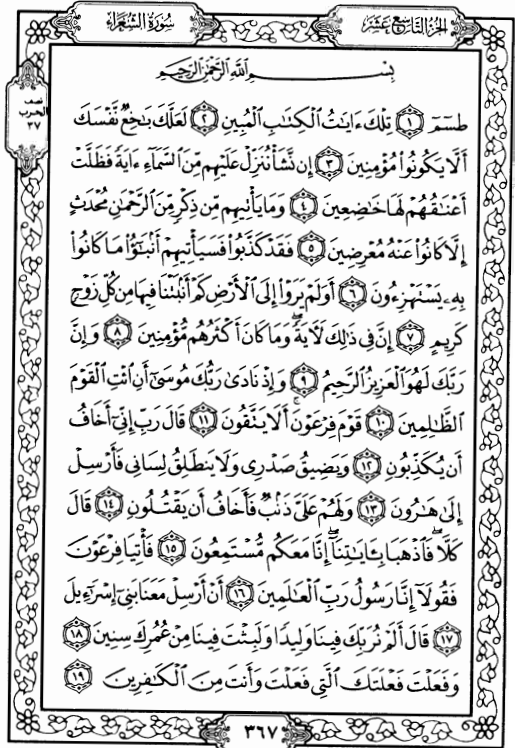 سُورَةُ الشُّعَرَاءِ
الجُزْءُ التَّاسِعَ عَشَرَ
نصف
الحزب
٣٧
بِسْمِ اللَّهِ الرَّحْمَٰنِ الرَّحِيمِ
طسٓمٓ ١ تِلْكَ ءَايَٰتُ الْكِتَٰبِ الْمُبِينِ ٢ لَعَلَّكَ بَٰخِعٌ نَّفْسَكَ
أَلَّا يَكُونُوا۟ مُؤْمِنِينَ ٣ إِن نَّشَأْ نُنَزِّلْ عَلَيْهِم مِّنَ السَّمَآءِ ءَايَةً فَظَلَّتْ
أَعْنَٰقُهُمْ لَهَا خَٰضِعِينَ ٤ وَمَا يَأْتِيهِم مِّن ذِكْرٍ مِّنَ الرَّحْمَٰنِ مُحْدَثٍ
إِلَّا كَانُوا۟ عَنْهُ مُعْرِضِينَ ٥ فَقَدْ كَذَّبُوا۟ فَسَيَأْتِيهِمْ أَنۢبَٰٓؤُا۟ مَا كَانُوا۟
بِهِۦ يَسْتَهْزِءُونَ ٦ أَوَلَمْ يَرَوْا۟ إِلَى الْأَرْضِ كَمْ أَنۢبَتْنَا فِيهَا مِن كُلِّ زَوْجٍ
كَرِيمٍ ٧ إِنَّ فِى ذَٰلِكَ لَءَايَةً ۖ وَمَا كَانَ أَكْثَرُهُم مُّؤْمِنِينَ ٨ وَإِنَّ
رَبَّكَ لَهُوَ الْعَزِيزُ الرَّحِيمُ ٩ وَإِذْ نَادَىٰ رَبُّكَ مُوسَىٰٓ أَنِ ائْتِ الْقَوْمَ
الظَّٰلِمِينَ ١٠ قَوْمَ فِرْعَوْنَ ۚ أَلَا يَتَّقُونَ ١١ قَالَ رَبِّ إِنِّىٓ أَخَافُ
أَن يُكَذِّبُونِ ١٢ وَيَضِيقُ صَدْرِى وَلَا يَنطَلِقُ لِسَانِى فَأَرْسِلْ
إِلَىٰ هَٰرُونَ ١٣ وَلَهُمْ عَلَىَّ ذَنۢبٌ فَأَخَافُ أَن يَقْتُلُونِ ١٤ قَالَ
كَلَّا ۖ فَاذْهَبَا بِـَٔايَٰتِنَآ ۖ إِنَّا مَعَكُم مُّسْتَمِعُونَ ١٥ فَأْتِيَا فِرْعَوْنَ
فَقُولَآ إِنَّا رَسُولُ رَبِّ الْعَٰلَمِينَ ١٦ أَنْ أَرْسِلْ مَعَنَا بَنِىٓ إِسْرَٰٓءِيلَ
١٧ قَالَ أَلَمْ نُرَبِّكَ فِينَا وَلِيدًا وَلَبِثْتَ فِينَا مِنْ عُمُرِكَ سِنِينَ ١٨
وَفَعَلْتَ فَعْلَتَكَ الَّتِى فَعَلْتَ وَأَنتَ مِنَ الْكَٰفِرِينَ ١٩
٣٦٧